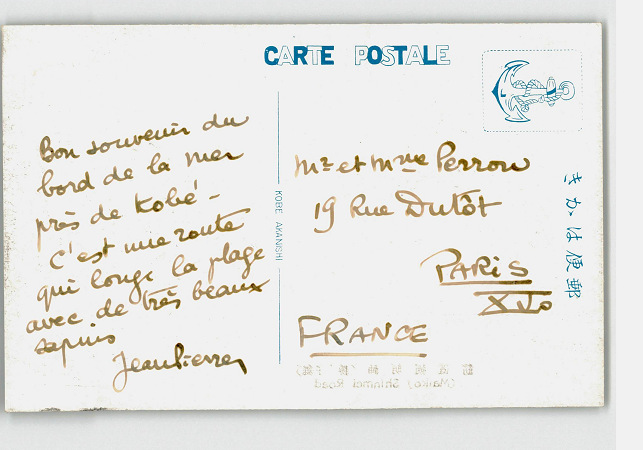 CARTE POSTALE
Bon souvenir du
bord de la mer
près de Kobé -
C'est une route
qui longe la plage
avec de très beaux
sapins
Jean Pierre
KOBE AKANISHI
Mr et Mme Perron
19 Rue Dutôt
PARIS
XVo
FRANCE
きかは便郵
(Maiko) Shinmei Road